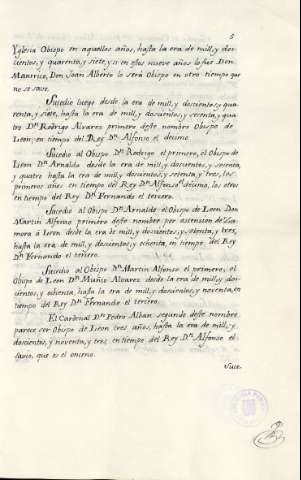 5
Yglesia Obispo en aquellos años, hasta la era de mill, y dos-
cientos, y quarenta, y siete, y si en estos nueve años lo fue Don
Manrrico, Don Juan Alberto lo será Obispo en otro tiempo que
no se save.
Sucedio luego desde la era de mill, y doscientos, y qua-
renta, y siete, hasta la era de mill, y doscientos, y setenta, y qua-
tro Dn. Rodrigo Alvarez primero deste nombre Obispo de
Leon, en tiempo del Rey Dn. Alfonso el decimo.
Sucedio al Obispo Dn. Rodrigo el primero, el Obispo de
Leon Dn. Arnaldo desde la era de mill, y doscientos, y setenta,
y quatro hasta la era de mill, y doscientos, y setenta, y tres, los
primeros años en tiempo del Rey Dn. Alfonso decimo, los otros
en tiempo del Rey Dn. Fernando el tercero.
Sucedio al Obispo Dn. Arnaldo el Obispo de Leon Don
Martin Alfonso primero deste nombre por ascension de Za-
mora á Leon desde la era de mill, y doscientos, y setenta, y tres,
hasta la era de mill, y doscientos, y ochenta, en tiempo del Rey
Dn. Fernando el tercero.
Sucedio al Obispo Dn. Martin Alfonso el primero, el
Obispo de Leon Dn. Muñio Alvarez desde la era de mill, y dos-
cientos, y ochenta, hasta la era de mill, y doscientos, y noventa, en
tiempo del Rey Dn. Fernando el tercero.
El Cardenal Dn. Pedro Alban segundo deste nombre
parece ser Obispo de Leon tres años, hasta la era de mill, y
doscientos, y noventa, y tres en tiempo del Rey Dn. Alfonso el
Savio, que es el onceno.